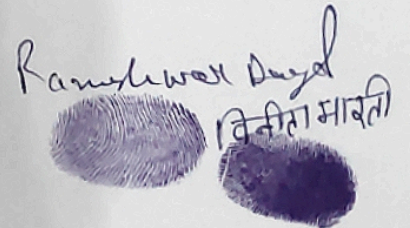 Rameshwar Dayal
विनीता भारती